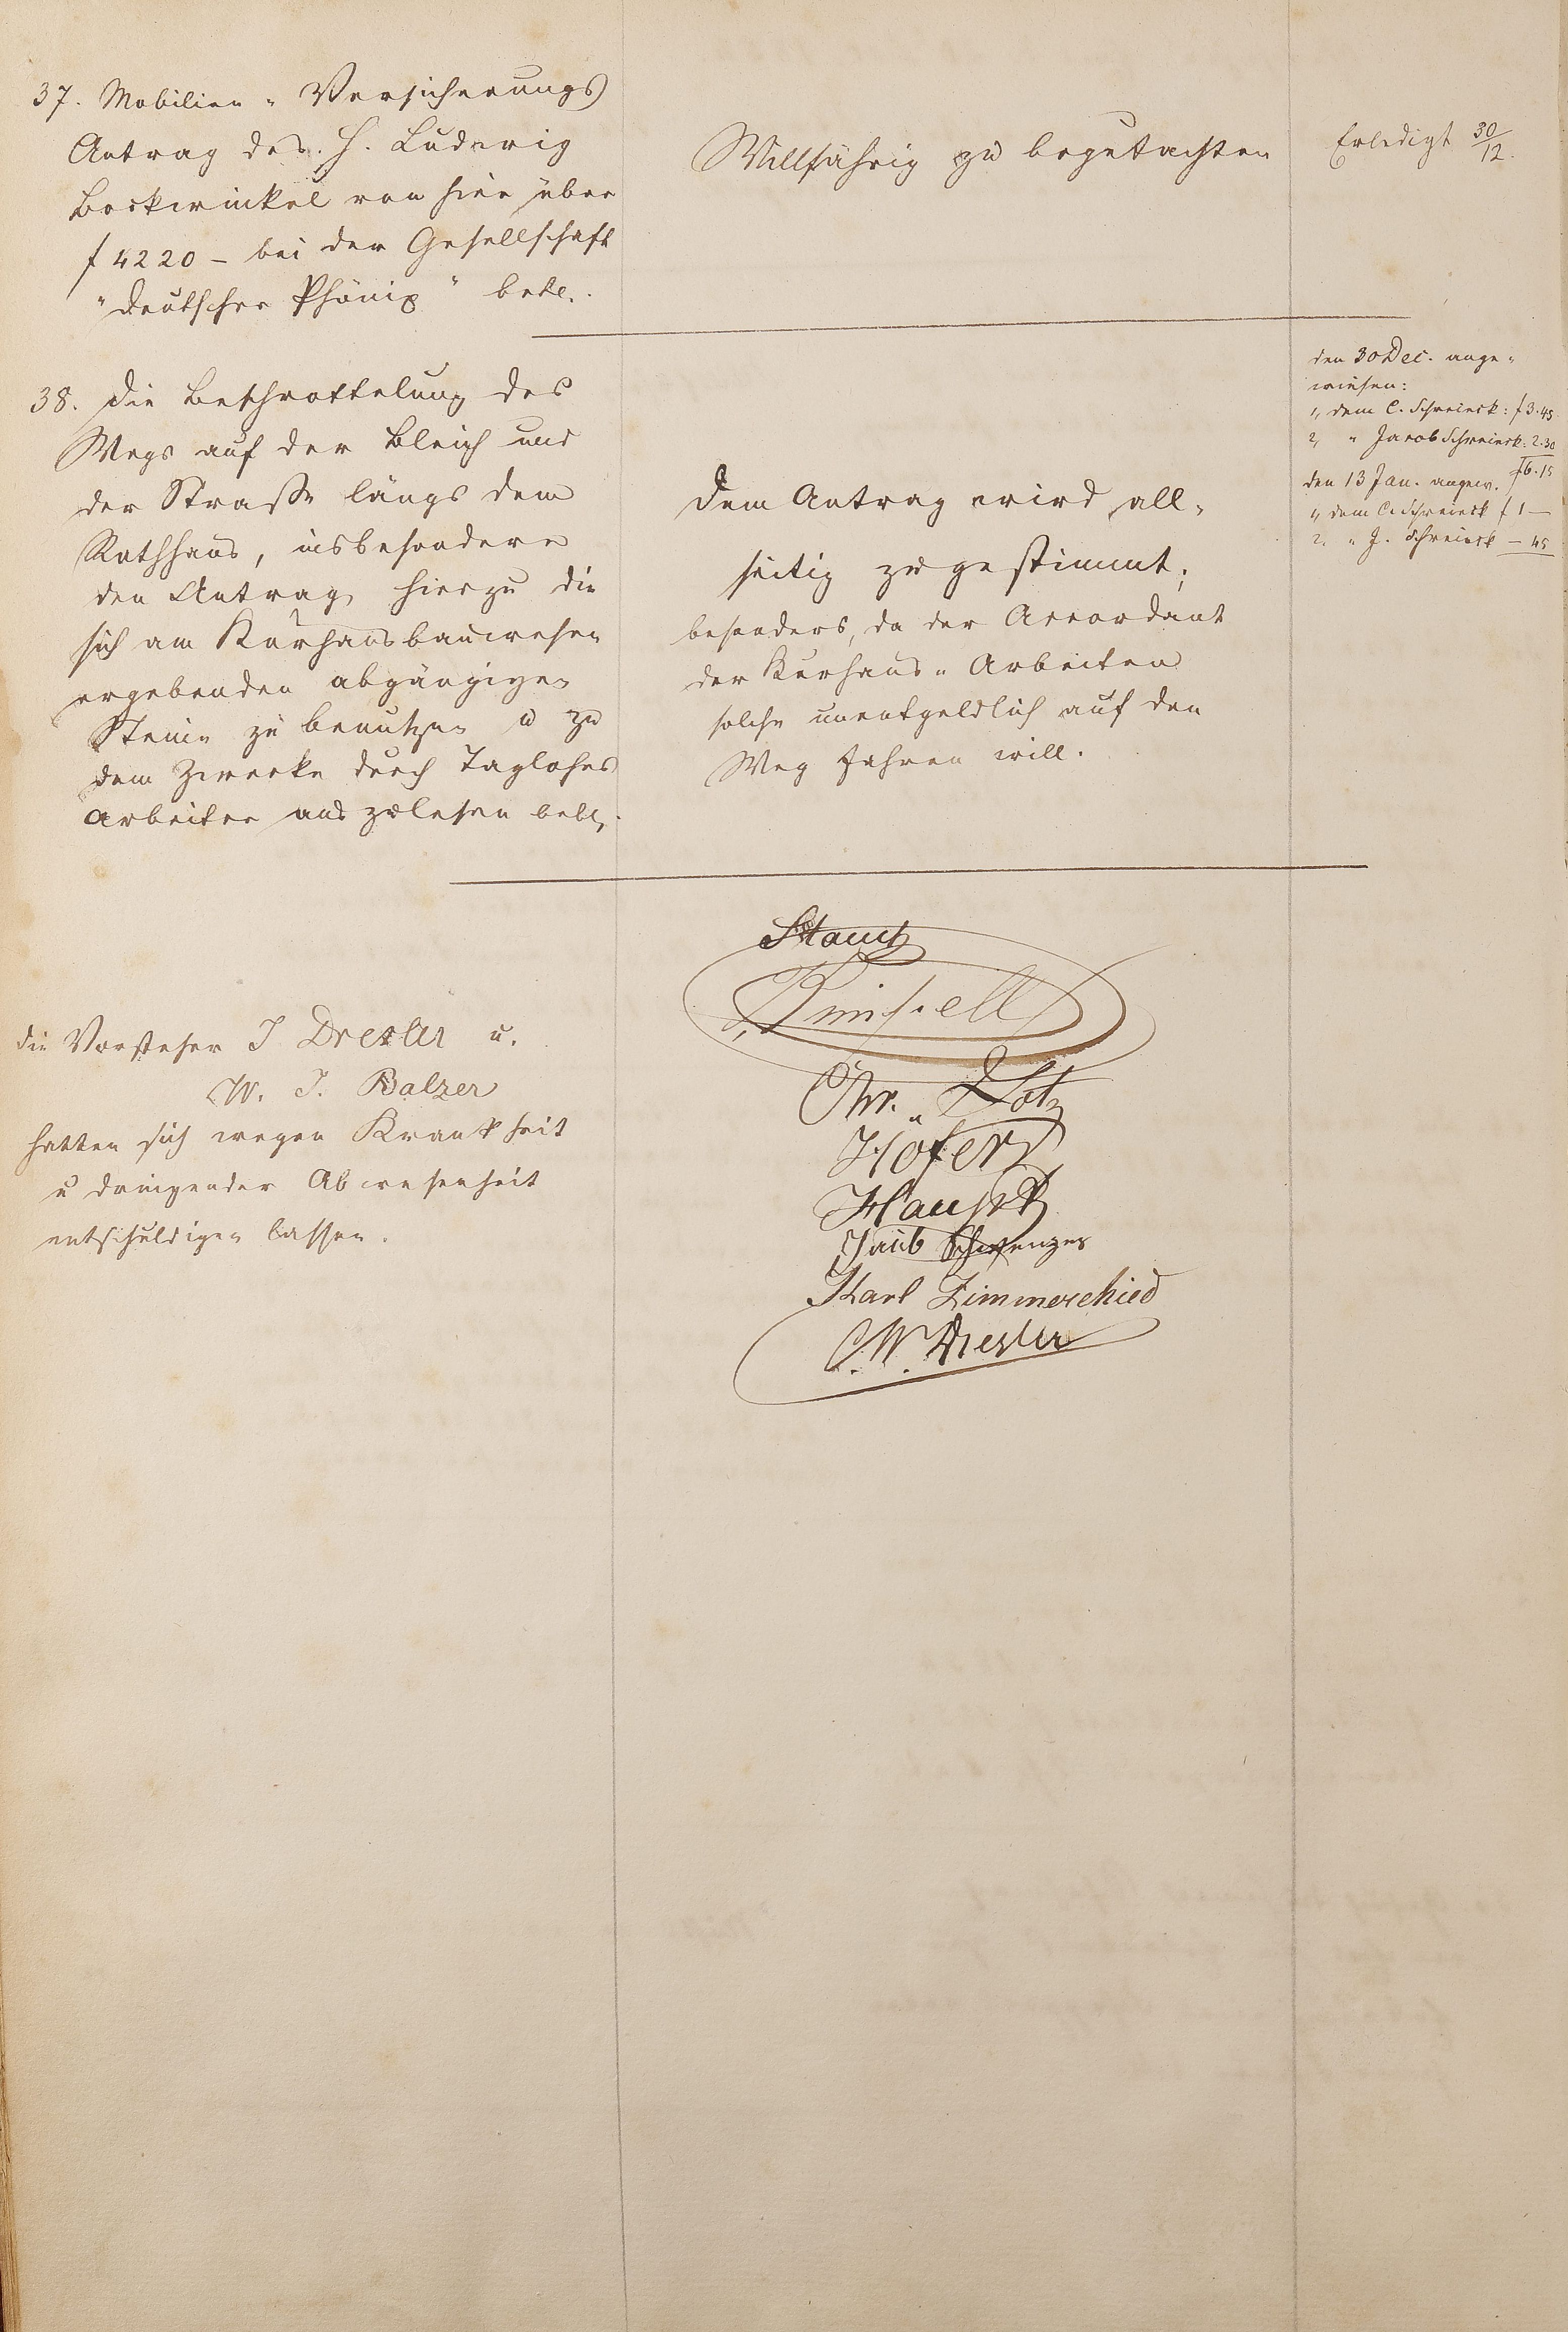 37. Mobilien-Versicherungs
Antrag des H. Ludwig
Bockwinkel von hier über
f 4220 – bei der Gesellschaft
"deutscher Phönix" betr.
Willfährig zu begutachten
Erledigt 30/12.
38. die Beschrottelung des
Wegs auf der Bleich und
der Straße längs dem
Rathhaus, insbesondere
den Antrag, hierzu die
sich am Kurhausbauwesen
ergebenden abgängigen
Steine zu benutzen u zu
dem Zwecke durch Taglohns
arbeiter auszulesen betr.
dem Antrag wird all-
seitig zugestimmt;
besonders, da der Accordant
der Kurhaus-Arbeiten
solche unentgeldlich auf den
Weg fahren will.
den 30 Dec. ange-
wiesen:
1, dem C. Schreieck: f 3.45
2, " Jacob Schreieck: 2.30
f 6.15
den 13 Jan. angew.
1, dem C. Schreieck f 1 —
2. " J. Schreieck — 45
die Vorsteher J Drexler u.
W. J. Balzer
hatten sich wegen Krankheit
u dringender Abwesenheit
entschuldigen lassen.
Chr. Lotz
Höfer
Karl Zimmerschied
C. W. Drexler